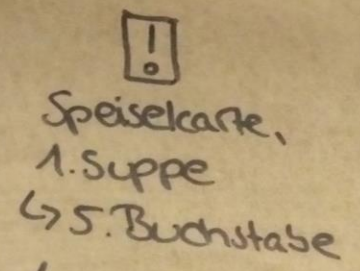 !
Speisekarte,
1. Suppe
↳ 5. Buchstabe